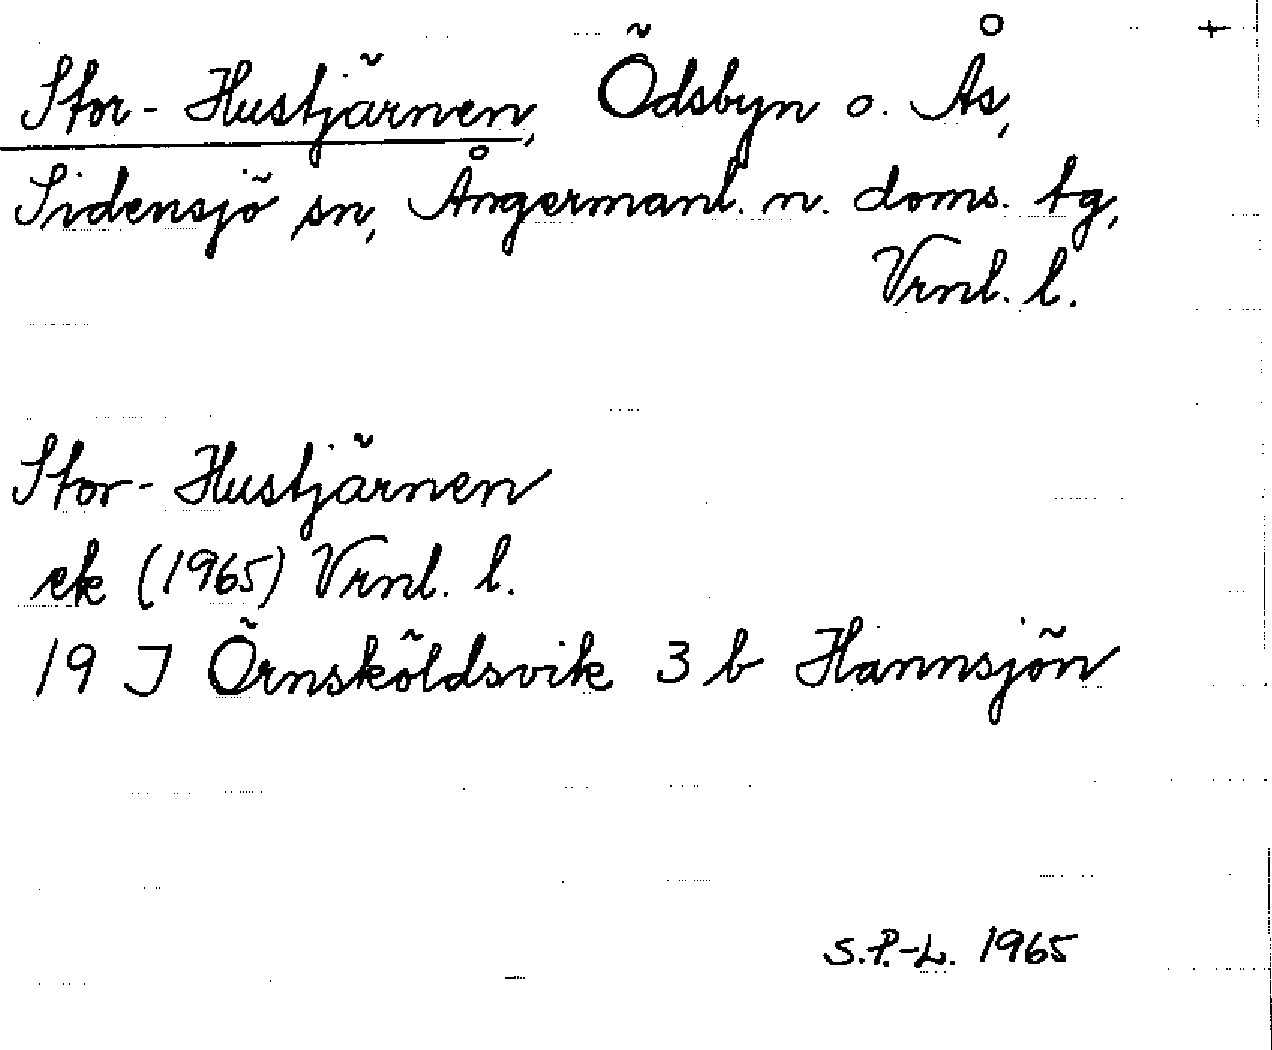 Stor-Hustjärnen, Ödsbyn o. Ås,
Sidensjö sn, Ångermanl. n. doms. tg,
Vrnl. l.
Stor-Hustjärnen
ek (1965) Vrnl. l.
19 J Örnsköldsvik 3 b Hannsjön
S.P.-L. 1965